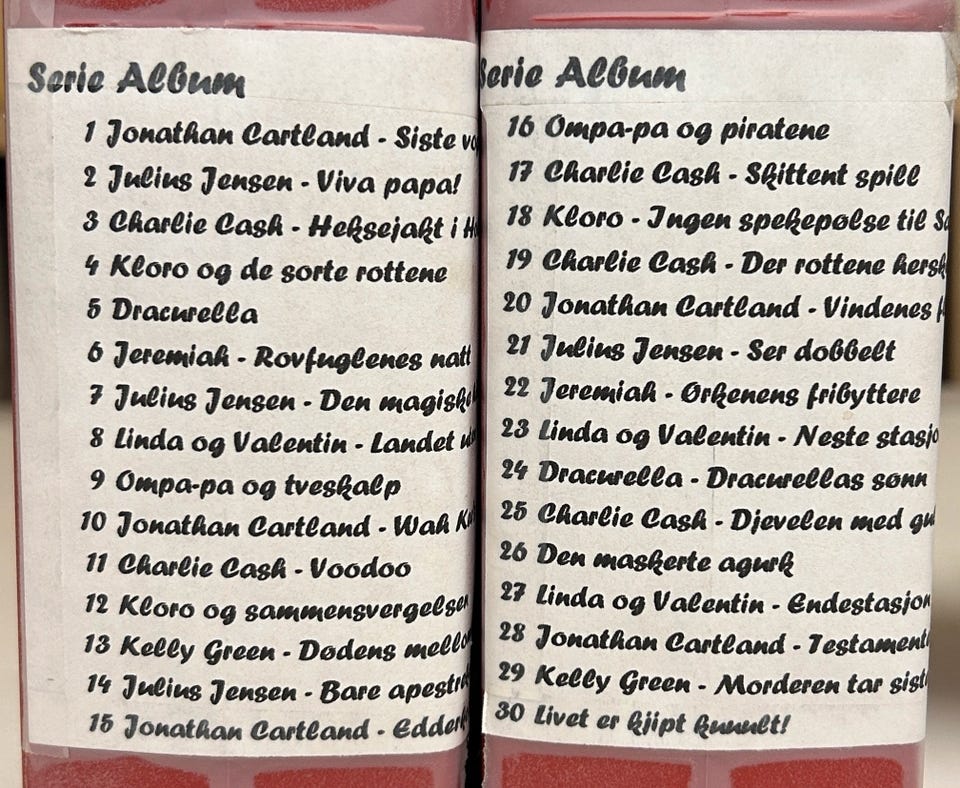 Serie Album
1 Jonathan Cartland - Siste
2 Julius Jensen - Viva papa!
3 Charlie Cash - Heksejakt i
4 Kloro og de sorte rottene
5 Dracurella
6 Jeremiah - Rovfuglenes natt
7 Julius Jensen - Den
8 Linda og Valentin - Landet
9 Ompa-pa og tveskalp
10 Jonathan Cartland - Wah
11 Charlie Cash - Voodoo
12 Kloro og sammensvergelsen
13 Kelly Green - Dødens
14 Julius Jensen - Bare
15 Jonathan Cartland -
Serie Album
16 Ompa-pa og piratene
17 Charlie Cash - Skittent spill
18 Kloro - Ingen spekepølse til
19 Charlie Cash - Der rottene
20 Jonathan Cartland - Vindenes
21 Julius Jensen - Ser dobbelt
22 Jeremiah - Ørkenens fribyttere
23 Linda og Valentin - Neste
24 Dracurella - Dracurellas sønn
25 Charlie Cash - Djevelen med
26 Den maskerte agurk
27 Linda og Valentin - Endestasjon
28 Jonathan Cartland -
29 Kelly Green - Morderen tar
30 Livet er kjipt kuuult!